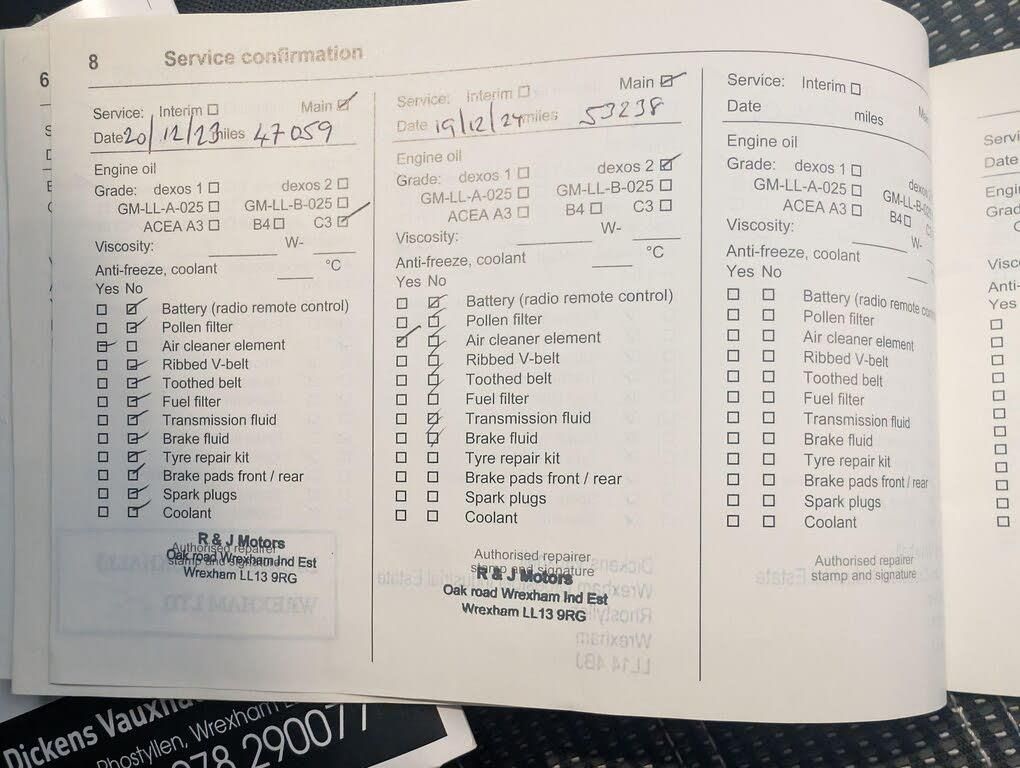 8 Service confirmation
Service: Interim Main
Date 20/12/23 miles 47059
Engine oil
Grade: dexos 1 dexos 2
GM-LL-A-025 GM-LL-B-025
ACEA A3 B4 C3
Viscosity: W-
Anti-freeze, coolant °C
Yes No
Battery (radio remote control)
Pollen filter
Air cleaner element
Ribbed V-belt
Toothed belt
Fuel filter
Transmission fluid
Brake fluid
Tyre repair kit
Brake pads front / rear
Spark plugs
Coolant
R & J Motors
Authorised repairer
Oak road Wrexham Ind Est
stamp and signature
Wrexham LL13 9RG
Service: Interim Main
Date 19/12/24 miles 53238
Engine oil
Grade: dexos 1 dexos 2
GM-LL-A-025 GM-LL-B-025
ACEA A3 B4 C3
Viscosity: W-
Anti-freeze, coolant °C
Yes No
Battery (radio remote control)
Pollen filter
Air cleaner element
Ribbed V-belt
Toothed belt
Fuel filter
Transmission fluid
Brake fluid
Tyre repair kit
Brake pads front / rear
Spark plugs
Coolant
Authorised repairer
stamp and signature
R & J Motors
Oak road Wrexham Ind Est
Wrexham LL13 9RG
Service: Interim
Date miles
Engine oil
Grade: dexos 1 dexos
GM-LL-A-025 GM-LL-B-025
ACEA A3 B4
Viscosity: W-
Anti-freeze, coolant
Yes No
Battery (radio remote
Pollen filter
Air cleaner element
Ribbed V-belt
Toothed belt
Fuel filter
Transmission fluid
Brake fluid
Tyre repair kit
Brake pads front / rear
Spark plugs
Coolant
Authorised repairer
stamp and signature
6
Date
Yes
Dickens
Rhostyllen, Wrexham
978 290077